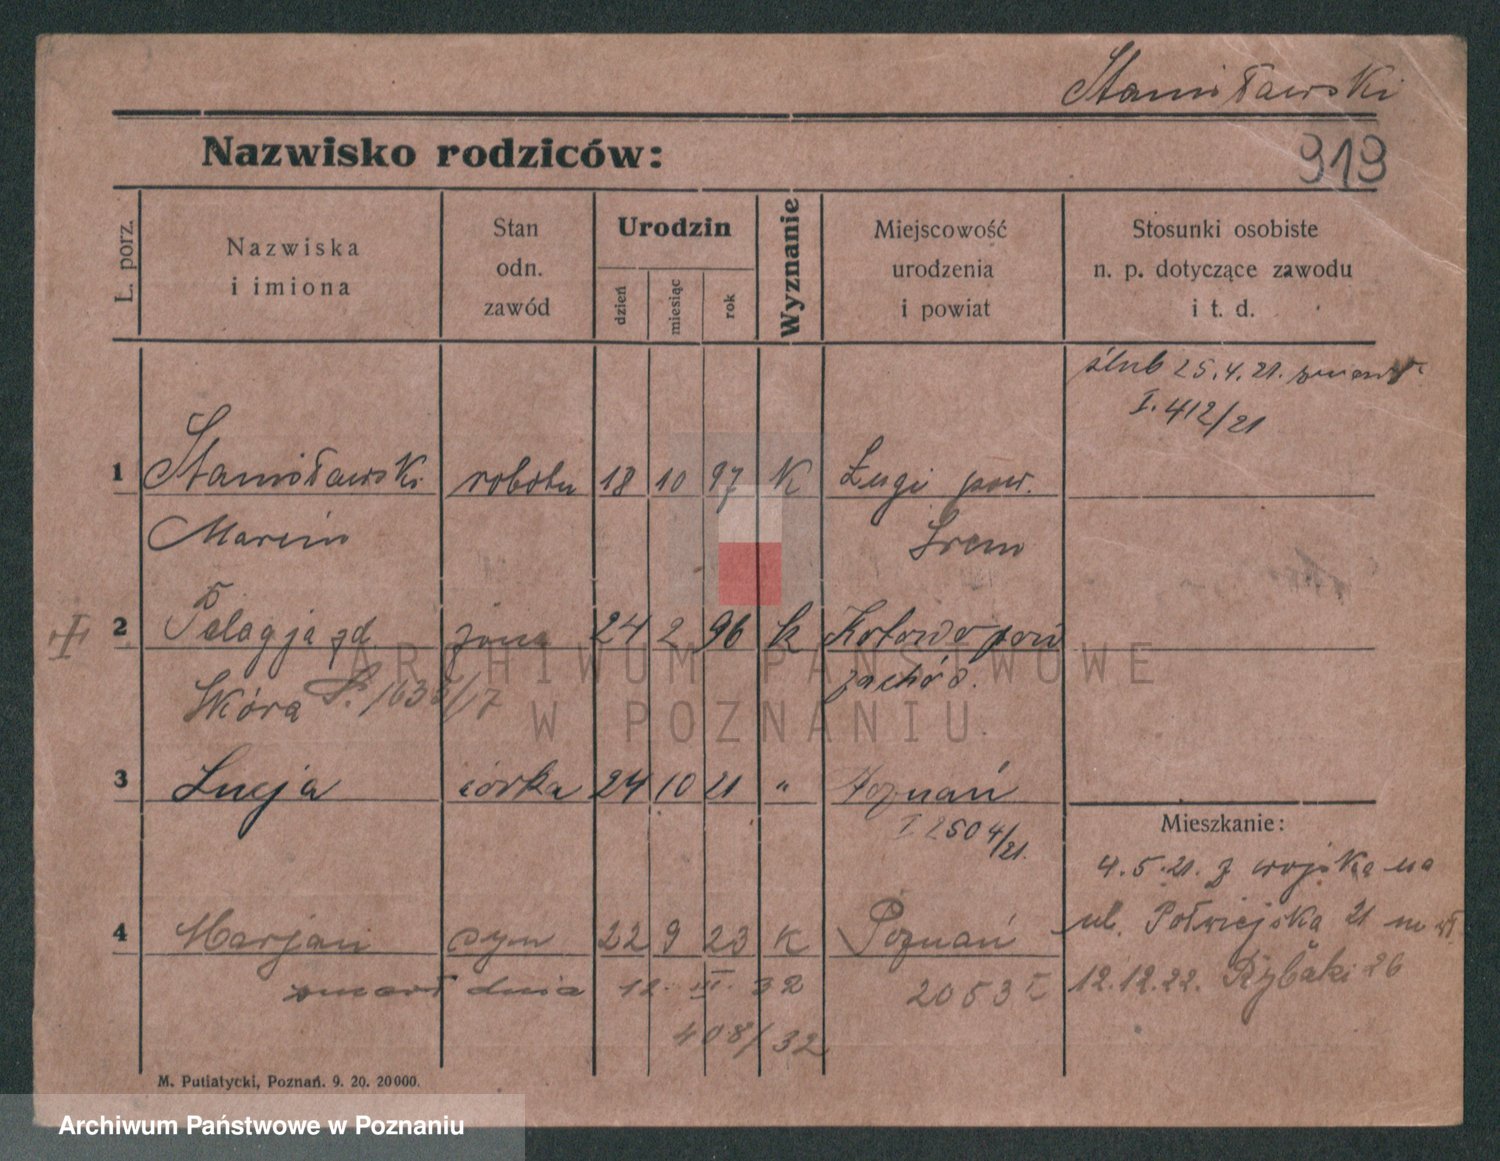 Stanisławski
919
Nazwisko rodziców:
L. porz.
Nazwiska
i imiona
Stan
odn.
zawód
Urodzin
dzień
miesiąc
rok
Wyznanie
Miejscowość
urodzenia
i powiat
Stosunki osobiste
n. p. dotyczące zawodu
i t. d.
ślub 25.4.21.
I. 412/21
1 Stanisławski robotn 18 10 97 K Ługi pow.
Marcin Śrem
2 Pelagja zd żona 24 2 96 k Kotowo pow
Skóra zachód.
3 Lucja córka 24 10 21 " Poznań
I 2504/21.
Mieszkanie:
4.5.21. z wojska na
ul. Półwiejska 21 m
4 Marjan syn 22 9 23 K Poznań
12.12.22. Rybaki 26
zmarł dnia 12. III. 32 2053 I
408/32
M. Putiatycki, Poznań. 9. 20. 20000.
ARCHIWUM PAŃSTWOWE
W POZNANIU
Archiwum Państwowe w Poznaniu